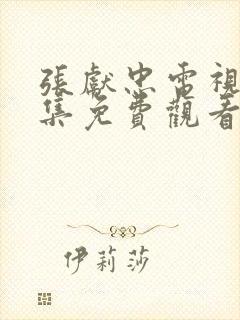 張獻忠電視
集免費觀看
伊莉莎